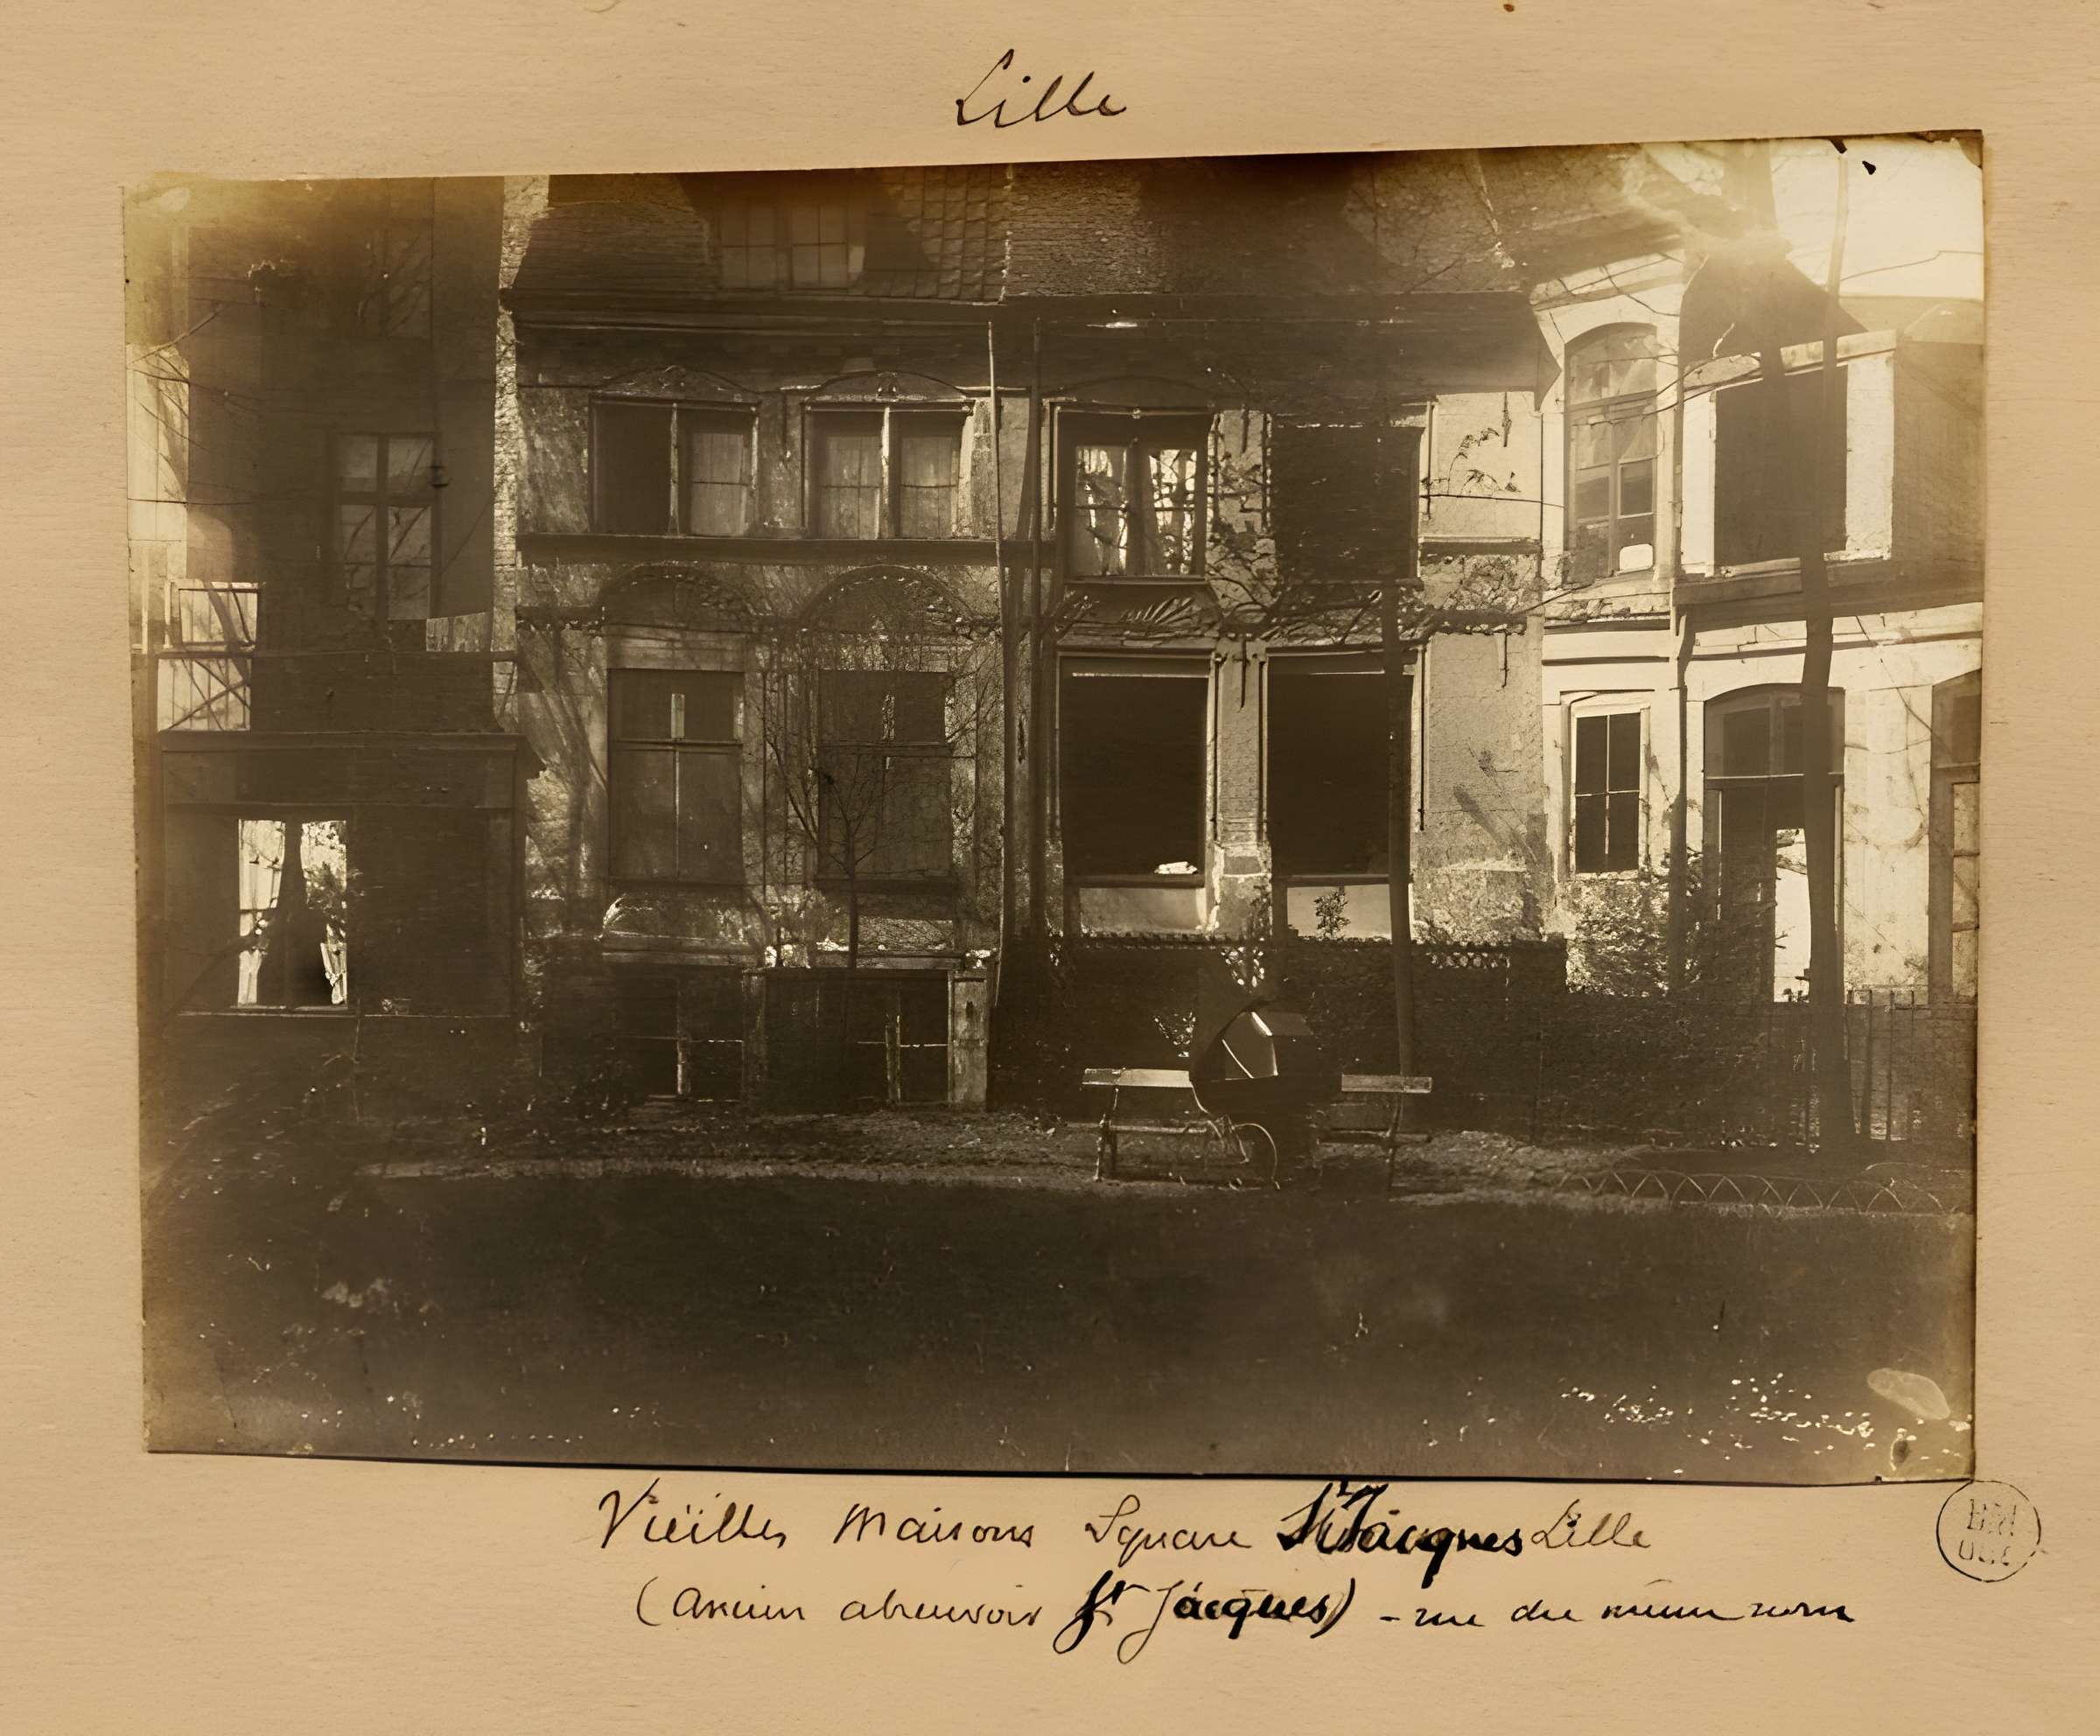 Lille
Vieilles Maisons Square St Jacques Lille
(ancien abreuvoir St Jacques) - rue du même nom